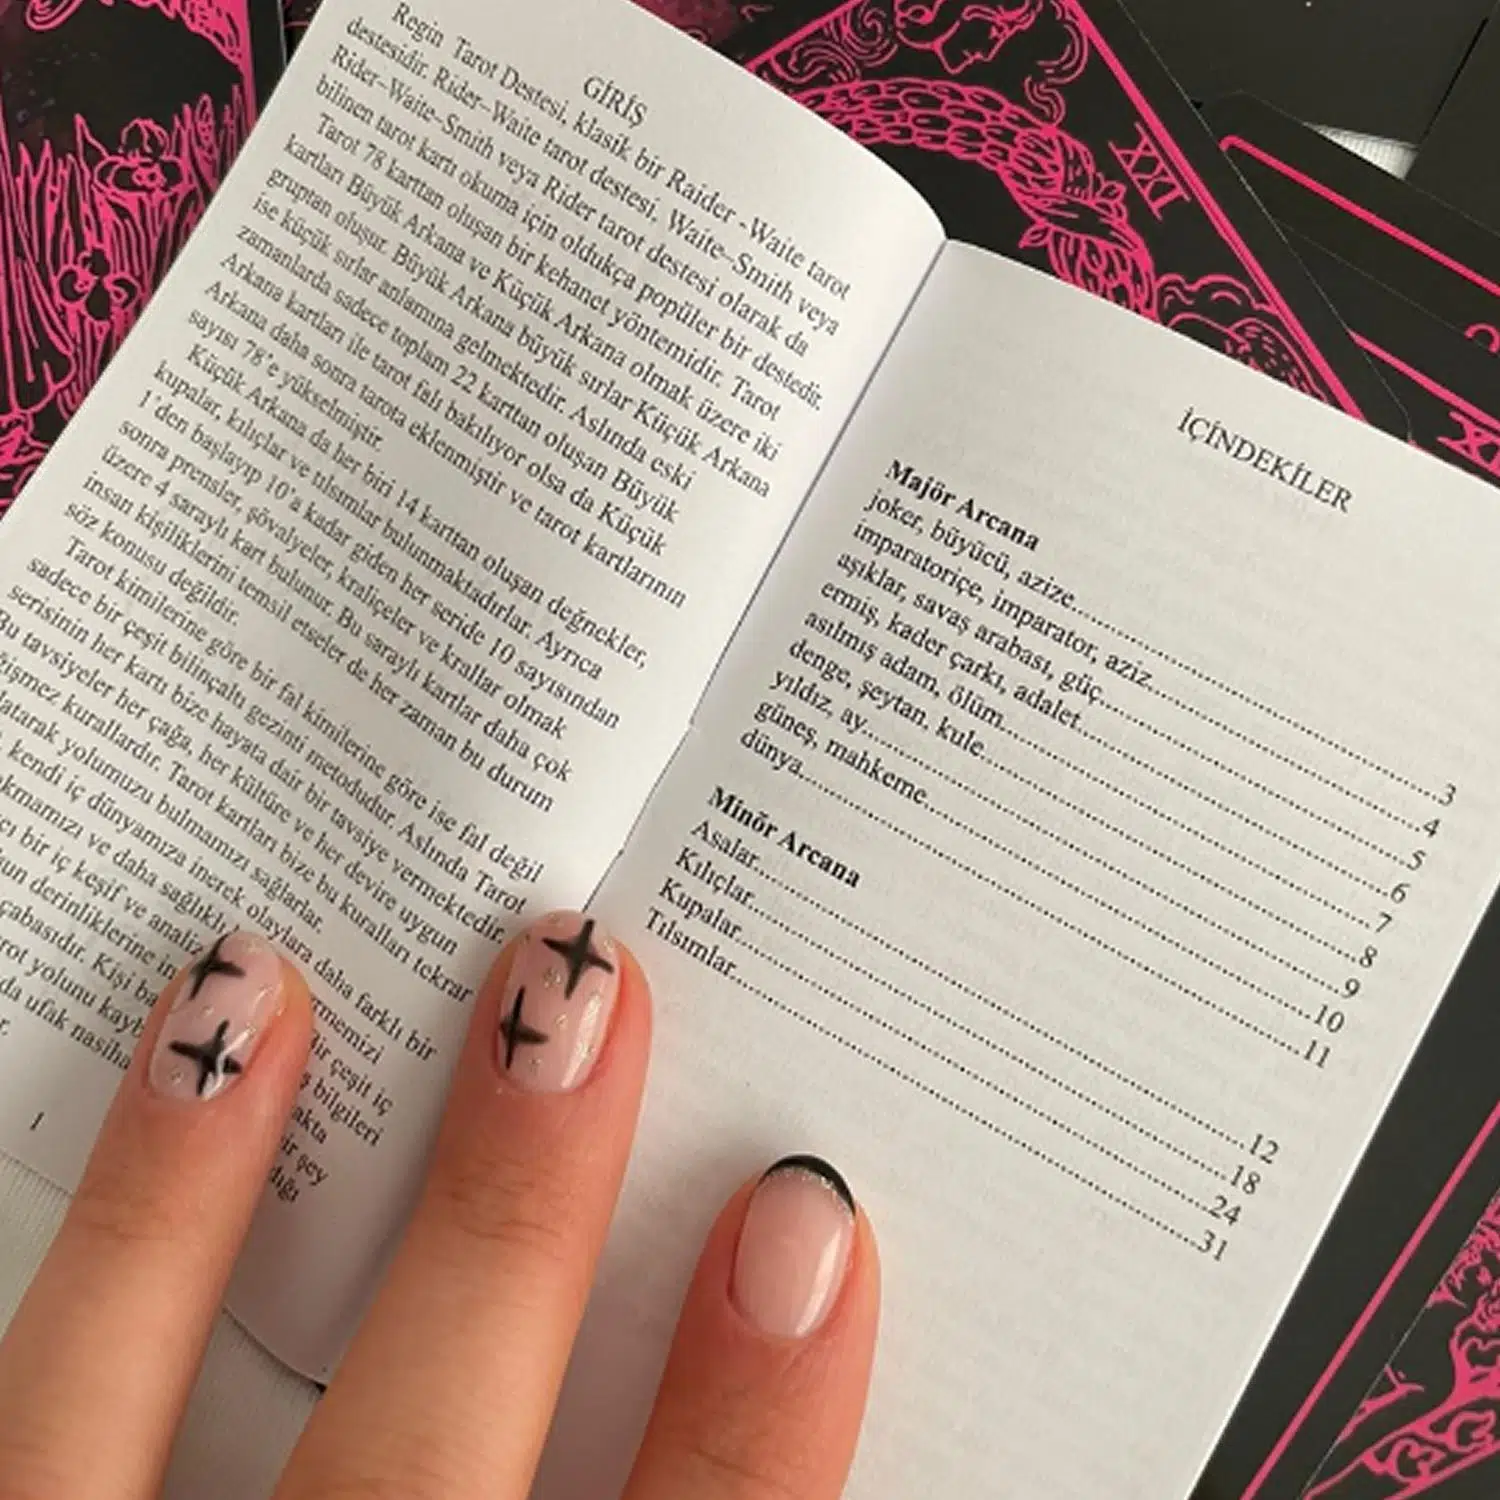 GİRİŞ
Regin Tarot Destesi, klasik bir Raider -Waite tarot
destesidir. Rider–Waite tarot destesi, Waite–Smith veya
Rider–Waite–Smith veya Rider tarot destesi olarak da
bilinen tarot kartı okuma için oldukça popüler bir destedir.
Tarot 78 karttan oluşan bir kehanet yöntemidir. Tarot
kartları Büyük Arkana ve Küçük Arkana olmak üzere iki
gruptan oluşur. Büyük Arkana büyük sırlar Küçük Arkana
ise küçük sırlar anlamına gelmektedir. Aslında eski
zamanlarda sadece toplam 22 karttan oluşan Büyük
Arkana kartları ile tarot falı bakılıyor olsa da Küçük
Arkana daha sonra tarota eklenmiştir ve tarot kartlarının
sayısı 78’e yükselmiştir.
Küçük Arkana da her biri 14 karttan oluşan değnekler,
kupalar, kılıçlar ve tılsımlar bulunmaktadırlar. Ayrıca
1’den başlayıp 10’a kadar giden her seride 10 sayısından
sonra prensler, şövalyeler, kraliçeler ve krallar olmak
üzere 4 saraylı kart bulunur. Bu saraylı kartlar daha çok
insan kişiliklerini temsil etseler de her zaman bu durum
söz konusu değildir.
Tarot kimilerine göre bir fal kimilerine göre ise fal değil
sadece bir çeşit bilinçaltı gezinti metodudur. Aslında Tarot
serisinin her kartı bize hayata dair bir tavsiye vermektedir.
Bu tavsiyeler her çağa, her kültüre ve her devire uygun
kurallardır. Tarot kartları bize bu kuralları tekrar
yolumuzu bulmamızı sağlarlar.
kendi iç dünyamıza inerek olaylara daha farklı bir
ve daha sağlıklı
bir iç keşif ve analiz çeşit iç
derinliklerine bilgileri
çabasıdır. Kişi
yolunu şey
da ufak
1
İÇİNDEKİLER
Majör Arcana
joker, büyücü, azize...3
imparatoriçe, imparator, aziz...4
aşıklar, savaş arabası, güç...5
ermiş, kader çarkı, adalet...6
asılmış adam, ölüm...7
denge, şeytan, kule...8
yıldız, ay...9
güneş, mahkeme...10
dünya...11
Minör Arcana
Asalar...12
Kılıçlar...18
Kupalar...24
Tılsımlar...31
XXI